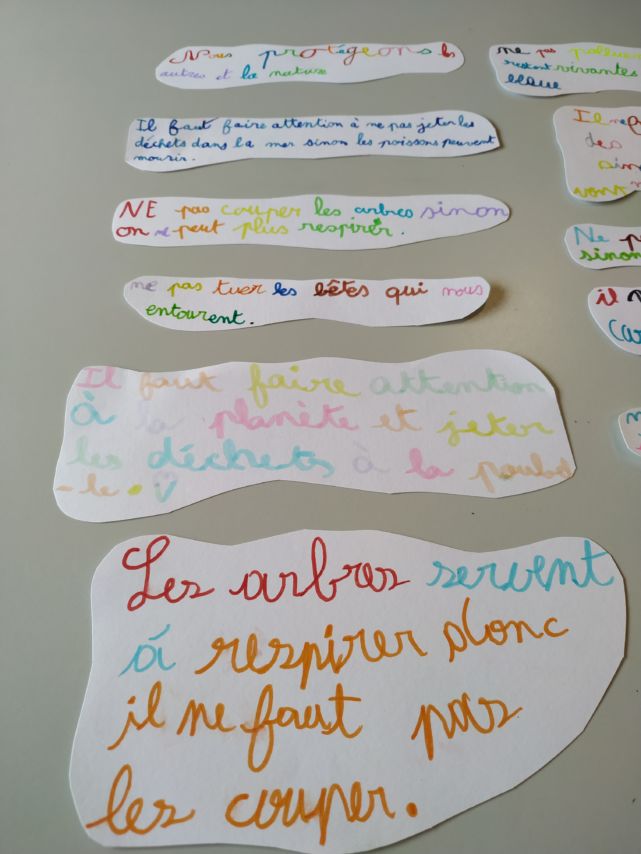 Nous protégeons les
autres et la nature
Il faut faire attention à ne pas jeter les
déchets dans la mer sinon les poissons peuvent
mourir.
NE pas couper les arbres sinon
on ne peut plus respirer.
ne pas tuer les bêtes qui nous
entourent.
Il faut faire attention
à la planète et jeter
les déchets à la poubel
-le.
Les arbres servent
á respirer donc
il ne faut pas
les couper.
ne pas
restent vivantes
Il ne
des
vont
Ne
sinon
il
car